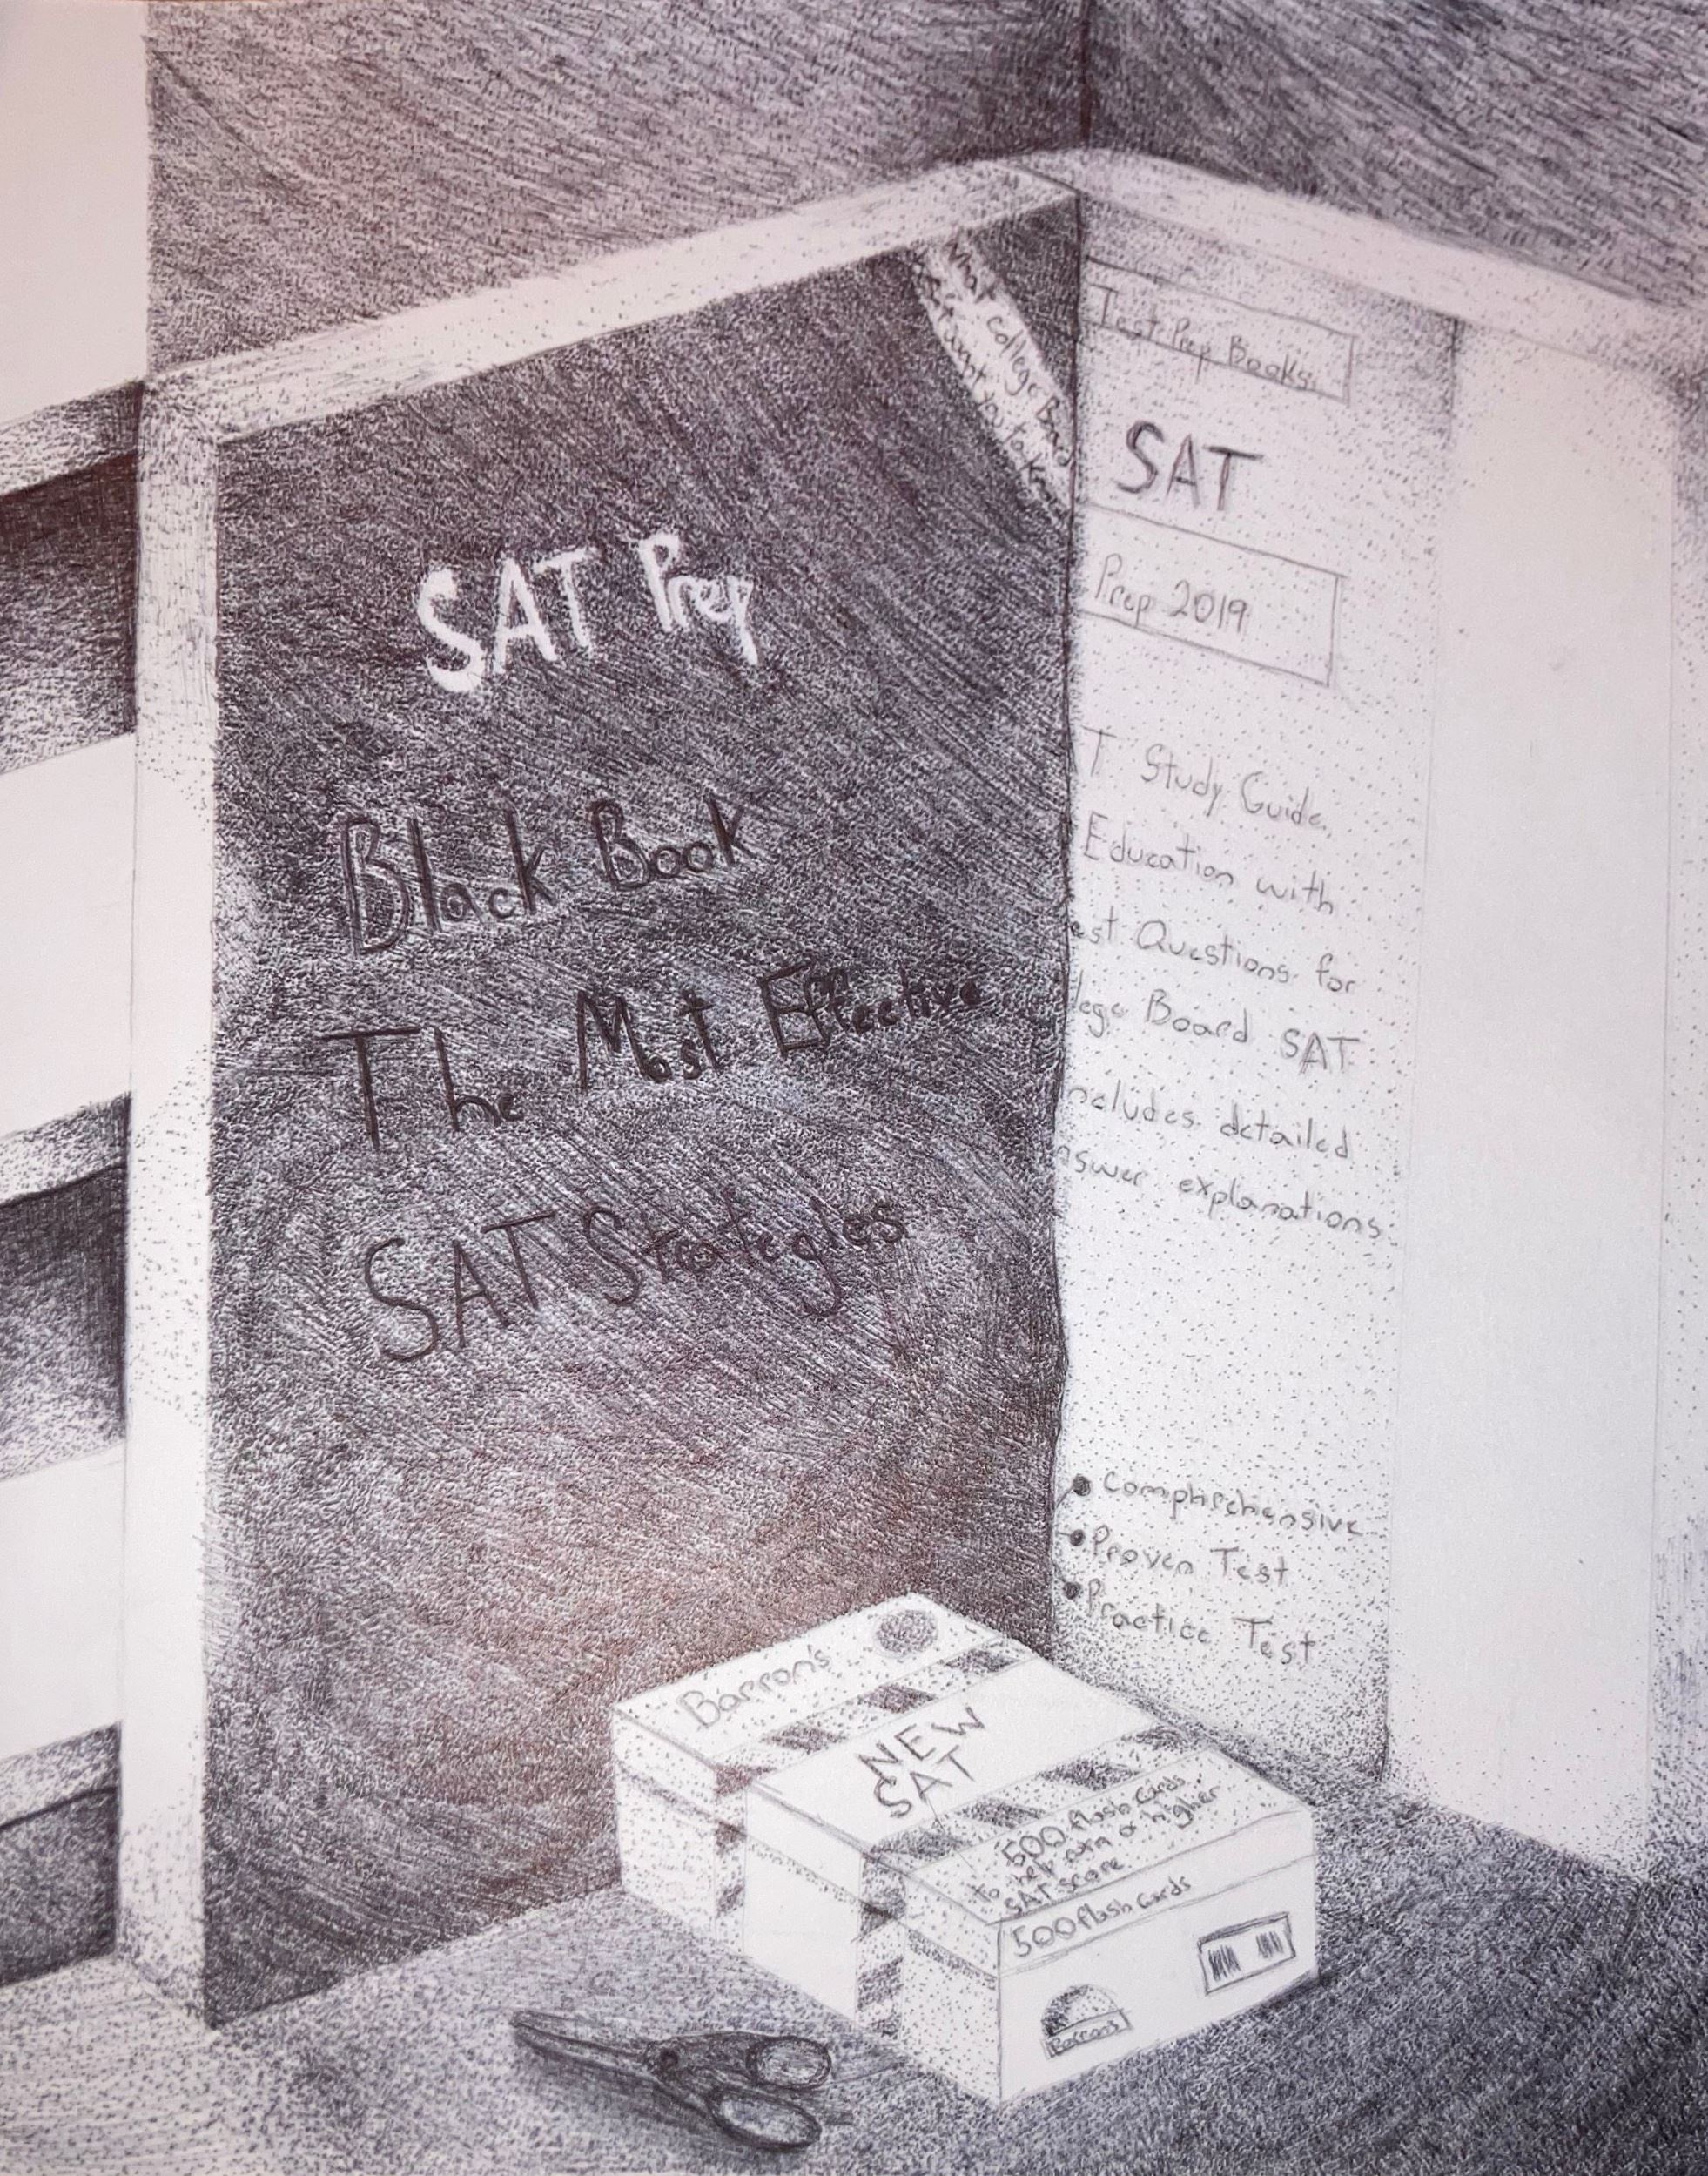 SAT Prep
Black Book
The Most Effective
SAT Strategies
What College Board
want you to Know
Test Prep Books
SAT
Prep 2019
T Study Guide
Education with
est Questions for
lege Board SAT
ncludes detailed
nswer explanations
• Comphrehensive
• Proven Test
• Practice Test
Barron's
NEW
SAT
500 flash Cards
to help earn a higher
SAT score
500 flash Cards
Barron's